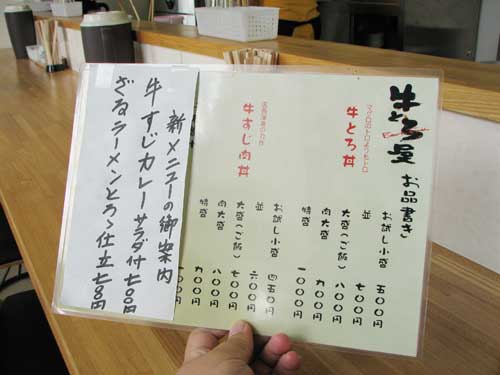 牛とろ屋 お品書き
マグロのトロよりも牛トロ
牛とろ丼
お試し小盛 五〇〇円
並 七〇〇円
大盛(ご飯) 八〇〇円
肉大盛 九〇〇円
特盛 一〇〇〇円
牛すじ肉丼
お試し小盛 四五〇円
並 六〇〇円
大盛(ご飯) 七〇〇円
肉大盛 八〇〇円
特盛 九〇〇円
新メニューの御案内
牛すじカレー サラダ付 七〇〇円
ざるラーメンとろゝ仕立 七五〇円